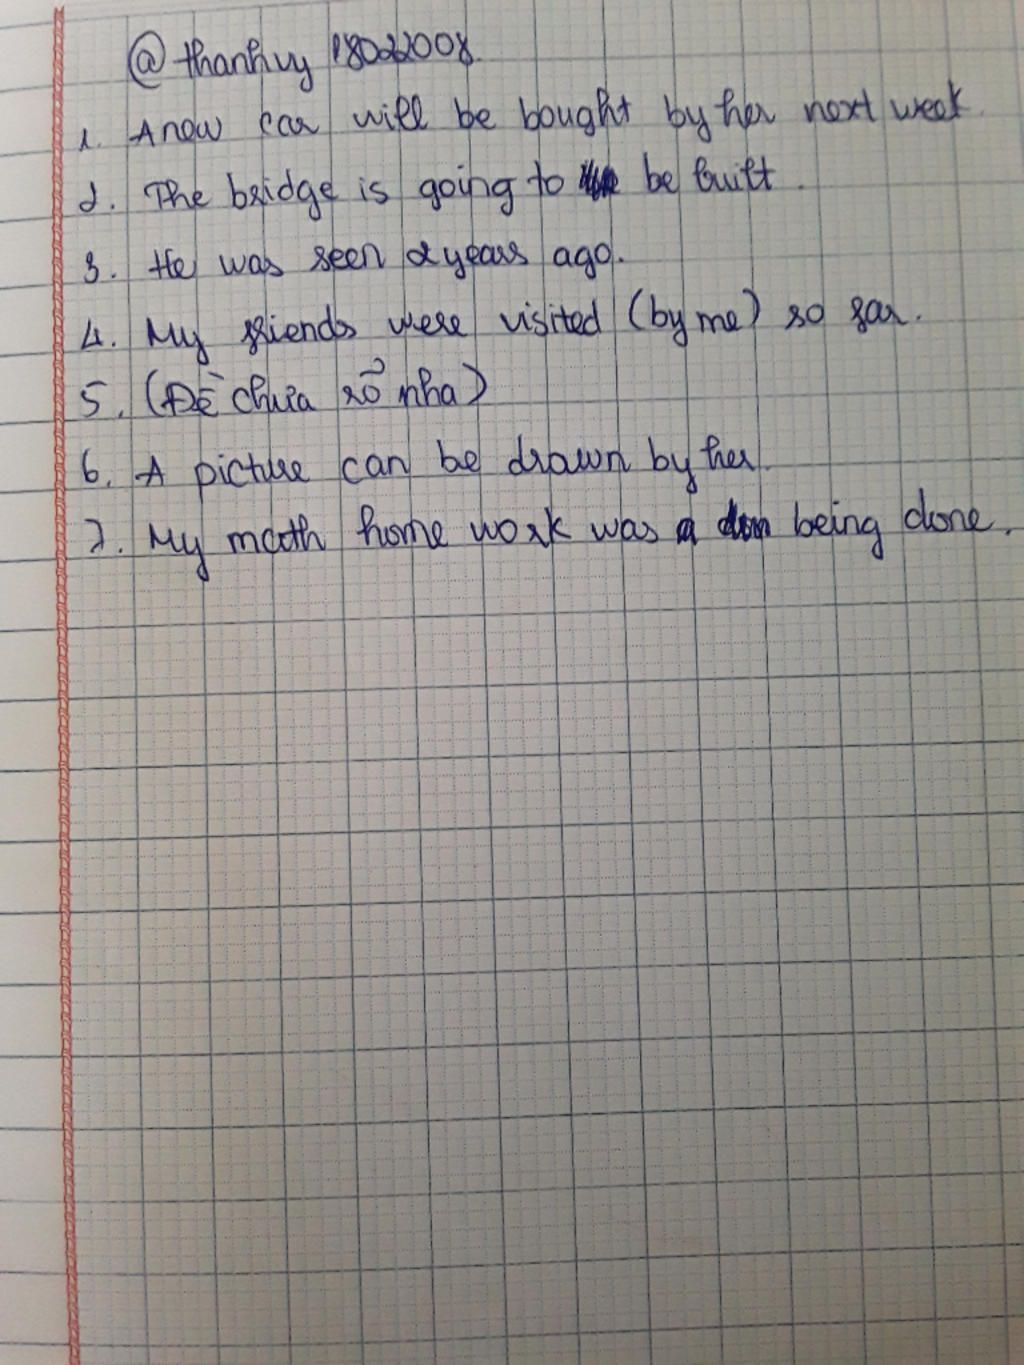 @thanhvy18022008.
1. A new car will be bought by her next week.
2. The bridge is going to be built.
3. He was seen 2 years ago.
4. My friends were visited (by me) so far.
5. (Đề chưa rõ nha)
6. A picture can be drawn by her.
7. My math home work was being done.